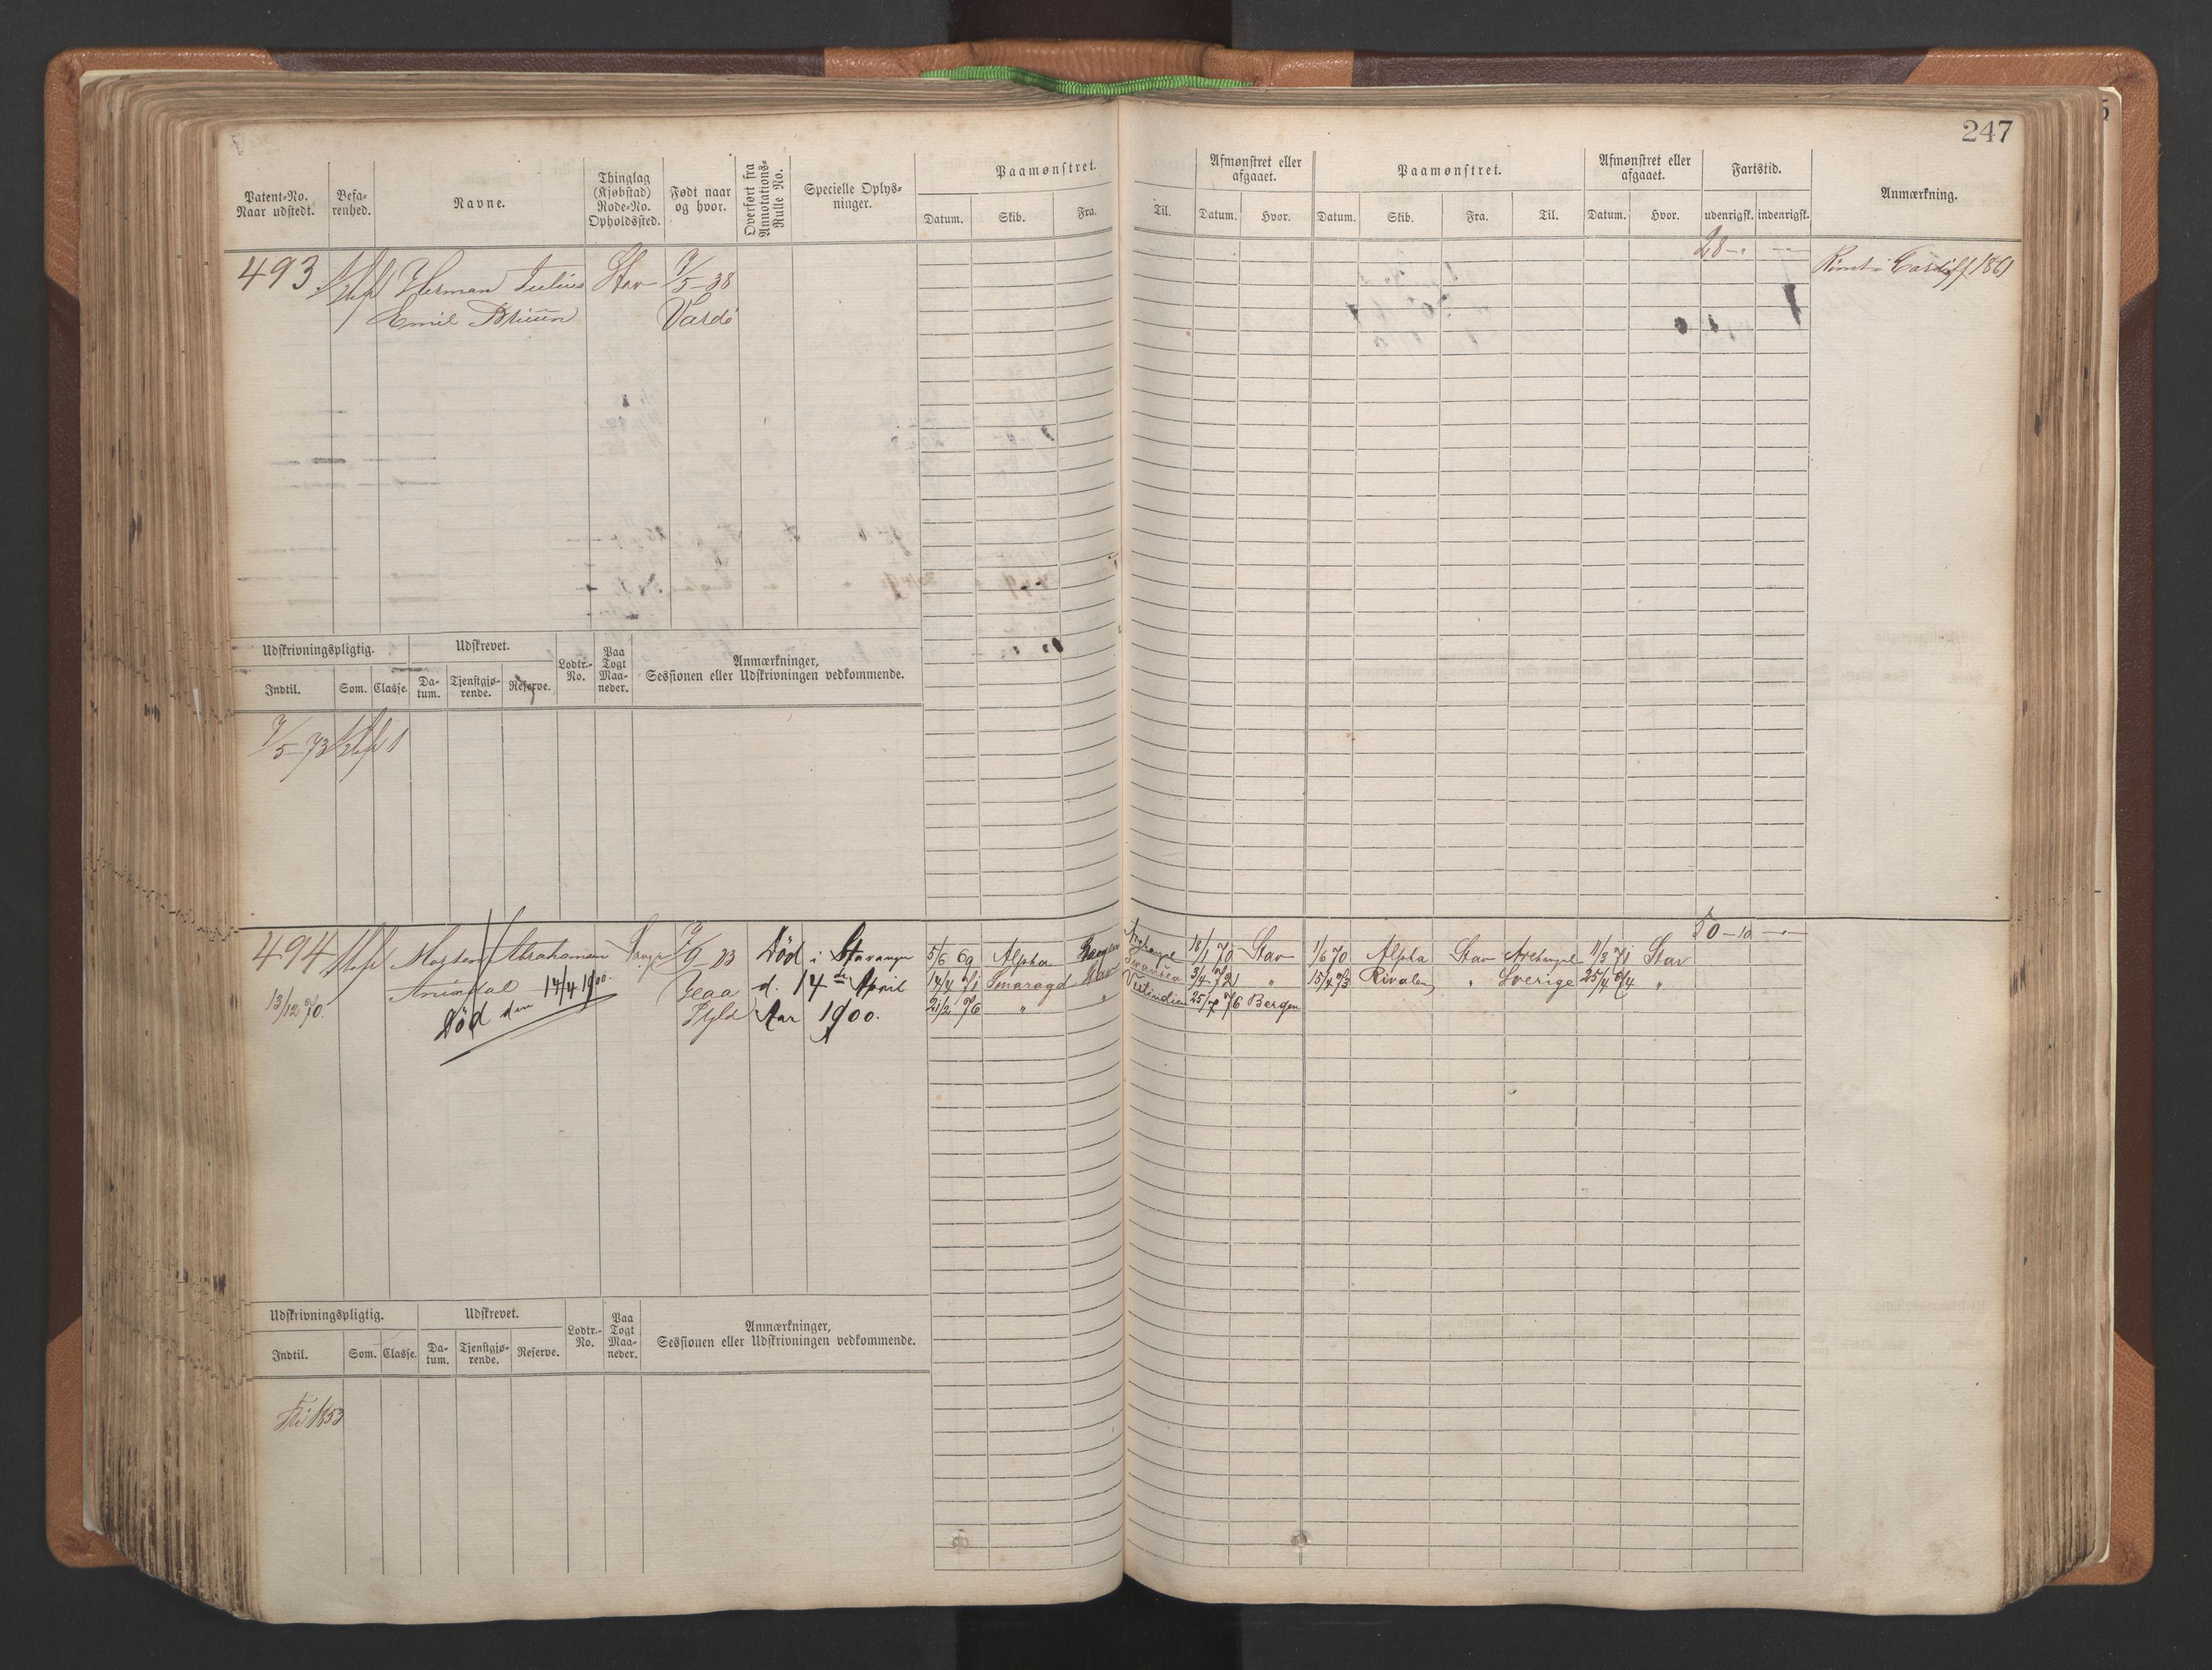 247
Patent=No. Naar udstedt.
Befa=renhed.
Navne.
Thinglag (Kjøbstad) Rode=No. Opholdssted.
Født naar og hvor.
Overført fra Annotations=Rulle No.
Specielle Oplys=ninger.
Paamønstret.
Datum. Skib. Fra. Til.
Afmønstret eller afgaaet.
Datum. Hvor.
Paamønstret.
Datum. Skib. Fra. Til.
Afmønstret eller afgaaet.
Datum. Hvor.
Fartstid.
udenrigsk. indenrigsk.
Anmærkning.
28
493 Herman Julius Stav 9/5-38 Cardiff 1861
Emil Vardö
Udskrivningspligtig. Udskrevet. Lodtr.-No. Paa Togt Maa=neder. Anmærkninger, Sessionen eller Udskrivningen vedkommende.
Indtil. Som. Classe. Da=tum. Tjenstgjø=rende. Reserve.
9/5-73 1
50-10
494 Morten Abrahamsen Død i Stavanger 5/6 69 Alpha Archangel 18/1 70 Stav 1/6 70 Alpha Stav Archangel 11/3 71 Stav
14/4 1900. d. 14de April 14/4 71 Smaragd Stav Swansea 3/4-72 " 15/4 73 Rivalen " Sverige 25/4 74 "
13/12 70. Død den Aar 1900. 21/2 76 " " Vestindien 25/7 76 Bergen
Udskrivningspligtig. Udskrevet. Lodtr.-No. Paa Togt Maa=neder. Anmærkninger, Sessionen eller Udskrivningen vedkommende.
Indtil. Som. Classe. Da=tum. Tjenstgjø=rende. Reserve.
1853